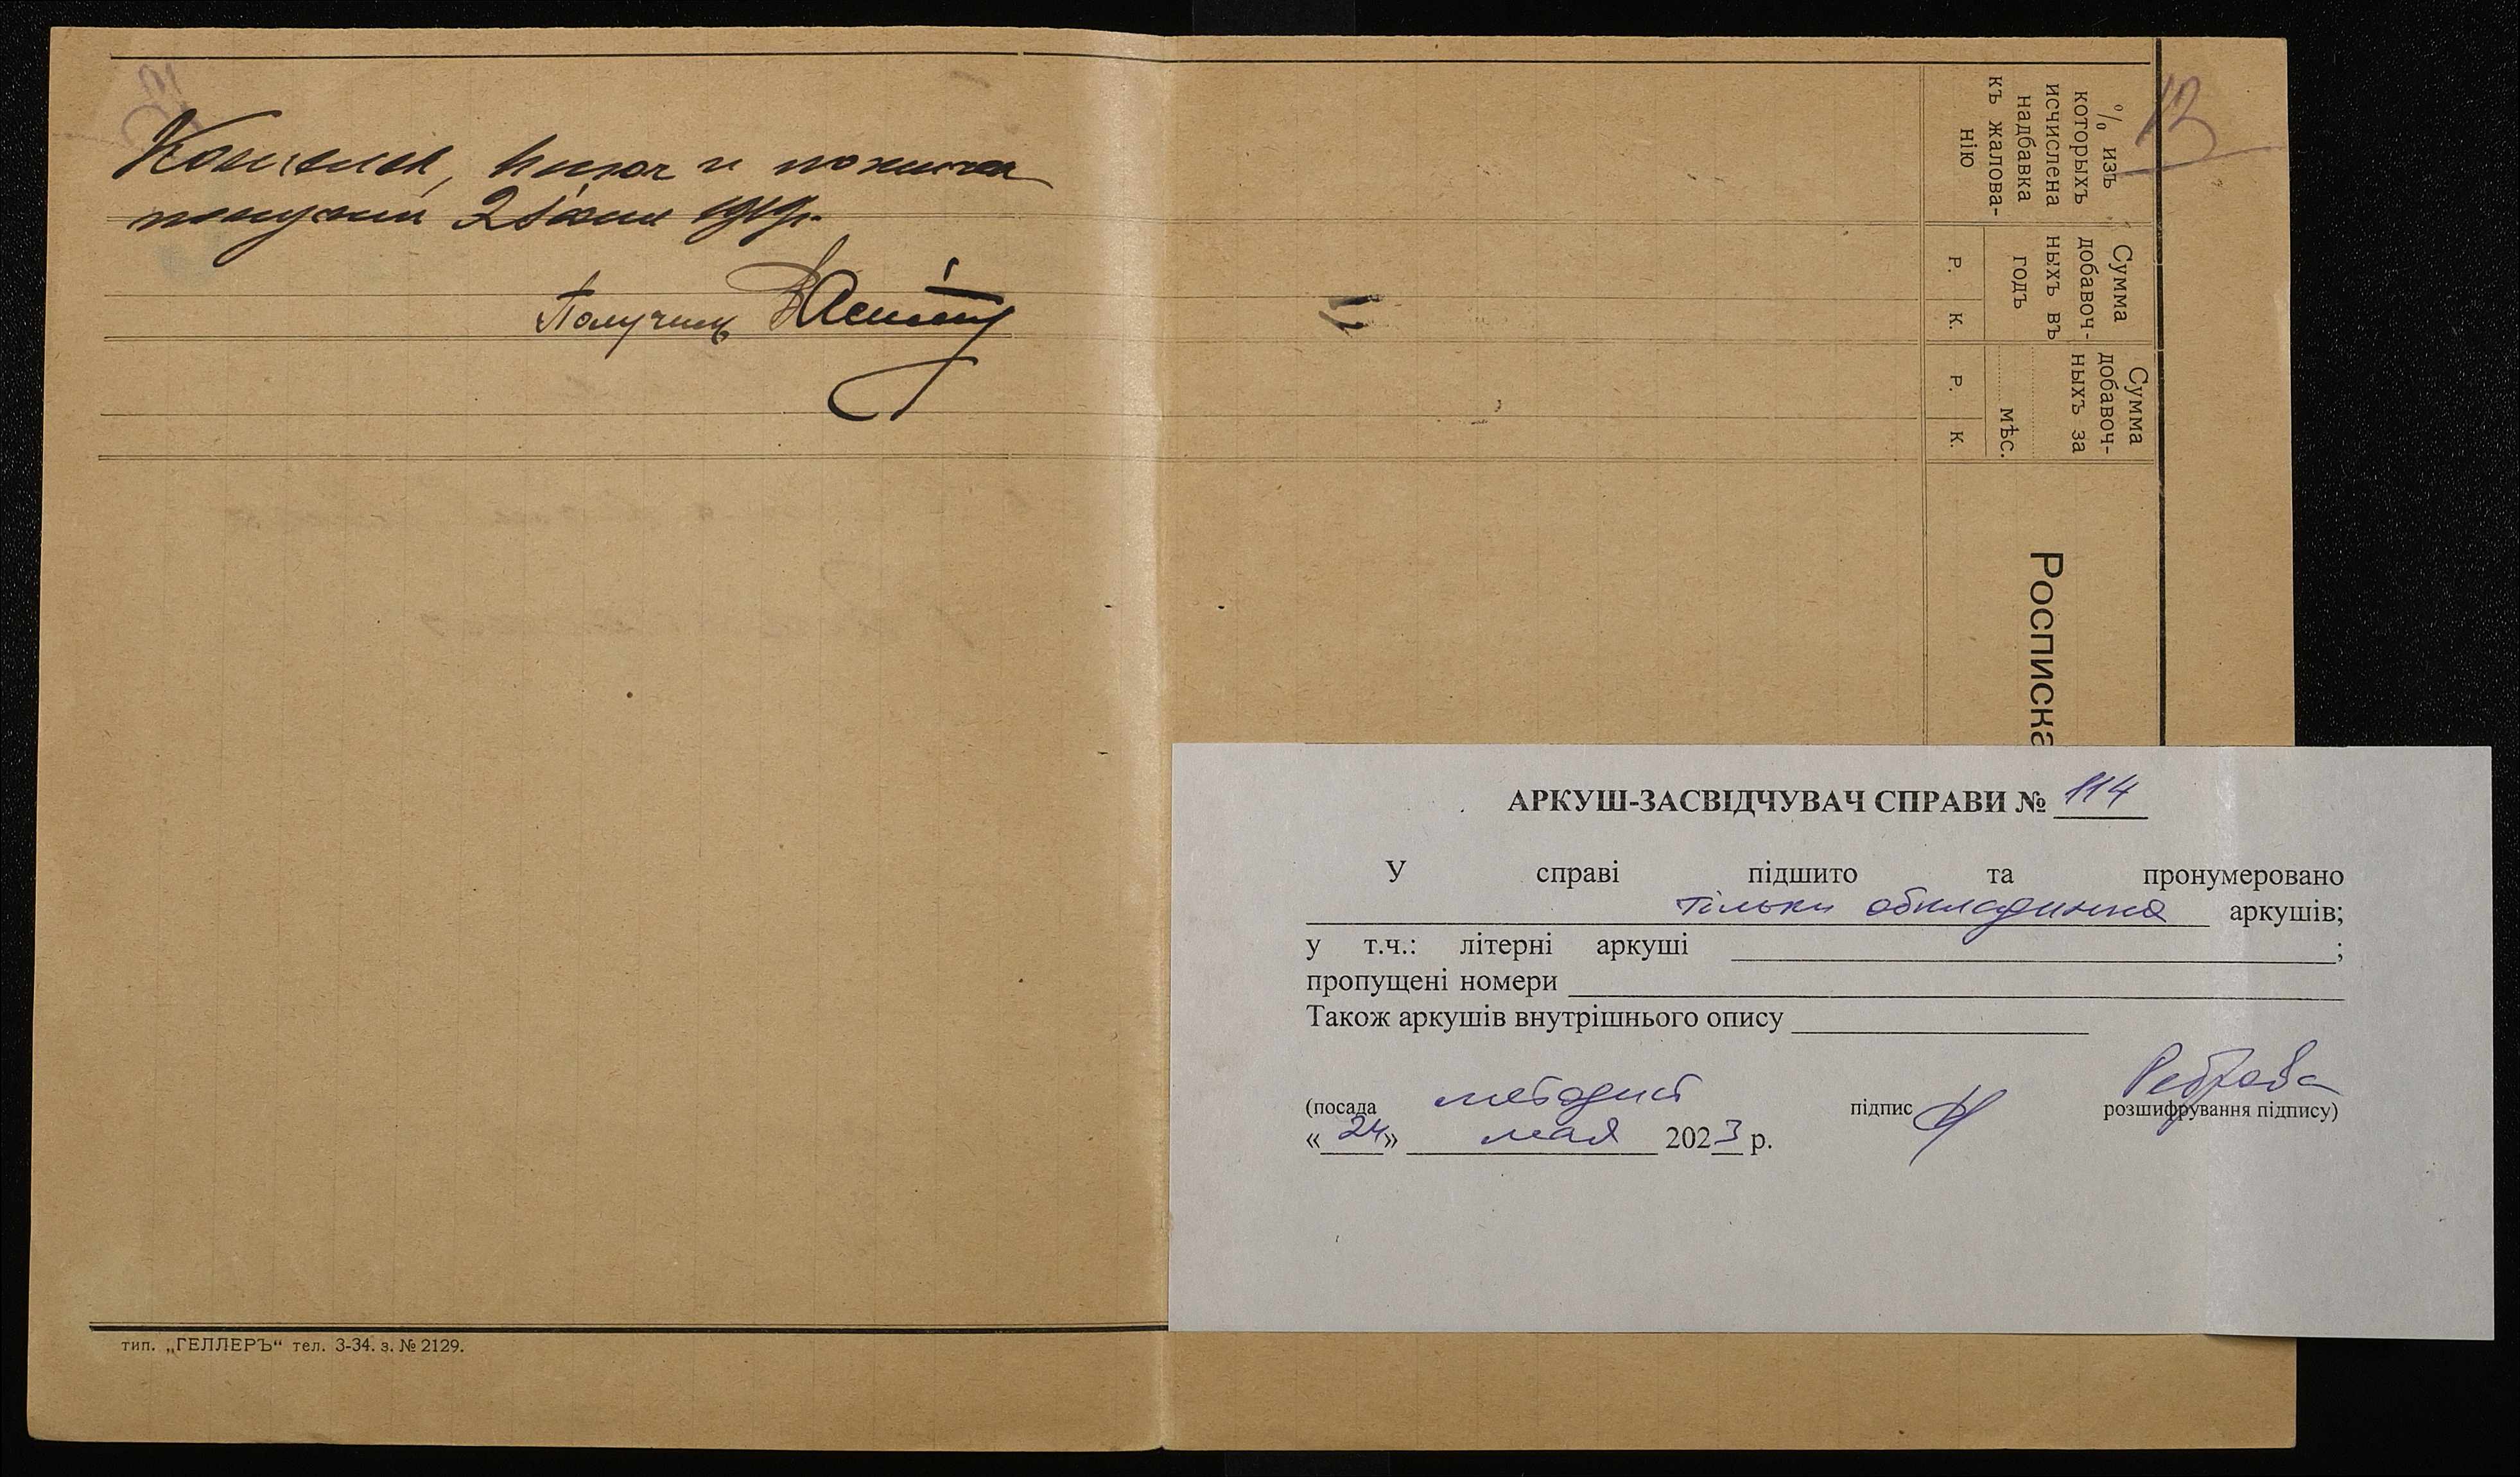 получилъ 1919г.
Получилъ
тип. „ГЕЛЛЕРЪ“ тел. 3-34. з. № 2129.
13
% изъ
которыхъ
исчислена
надбавка
къ жалова-
нію
Сумма
добавоч-
ныхъ въ
годъ
Р.
К.
Сумма
добавоч-
ныхъ за
мѣс.
Р.
К.
Росписка
АРКУШ-ЗАСВІДЧУВАЧ СПРАВИ № 114
У справі підшито та пронумеровано
тільки обкладинка аркушів;
у т.ч.: літерні аркуші ;
пропущені номери
Також аркушів внутрішнього опису
(посада методист підпис Реброва розшифрування підпису)
«24» мая 2023 р.